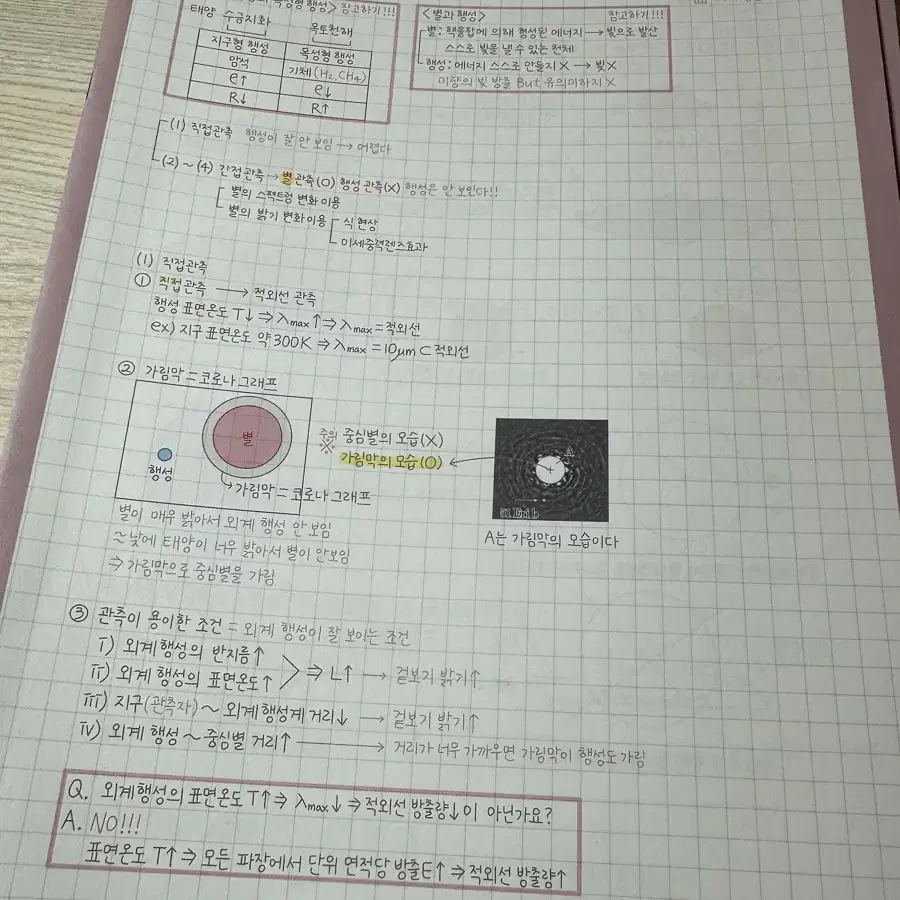 목성형 행성> 참고하기!!!
태양 수금지화 목토천해
지구형 행성 목성형 행성
암석 기체 (H₂, CH₄)
ρ↑ ρ↓
R↓ R↑
<별과 행성> 참고하기!!!
별: 핵융합에 의해 형성된 에너지 → 빛으로 발산
스스로 빛을 낼 수 있는 천체
행성: 에너지 스스로 만들지 X → 빛X
미량의 빛 방출 But 유의미하지 X
(1) 직접관측 행성이 잘 안 보임 → 어렵다
(2)~(4) 간접관측 → 별 관측(O) 행성 관측(X) 행성은 안 보인다!!
별의 스펙트럼 변화 이용
별의 밝기 변화 이용 식 현상
미세중력렌즈효과
(1) 직접관측
① 직접관측 → 적외선 관측
행성 표면온도 T↓ ⇒ λmax↑ ⇒ λmax = 적외선
ex) 지구 표면온도 약 300K ⇒ λmax = 10μm ⊂ 적외선
② 가림막 = 코로나그래프
별
행성
가림막 = 코로나그래프
주의 ※ 중심별의 모습(X)
가림막의 모습(O)
A
51 Eri b
A는 가림막의 모습이다
별이 매우 밝아서 외계 행성 안 보임
≈ 낮에 태양이 너무 밝아서 별이 안보임
⇒ 가림막으로 중심별을 가림
③ 관측이 용이한 조건 = 외계 행성이 잘 보이는 조건
i) 외계행성의 반지름↑
ii) 외계 행성의 표면온도↑ ⇒ L↑ → 겉보기 밝기↑
iii) 지구(관측자) ~ 외계행성계 거리↓ → 겉보기 밝기↑
iv) 외계 행성 ~ 중심별 거리↑ → 거리가 너무 가까우면 가림막이 행성도 가림
Q. 외계행성의 표면온도 T↑ ⇒ λmax↓ ⇒ 적외선 방출량↓이 아닌가요?
A. NO!!!
표면온도 T↑ ⇒ 모든 파장에서 단위 면적당 방출E↑ ⇒ 적외선 방출량↑